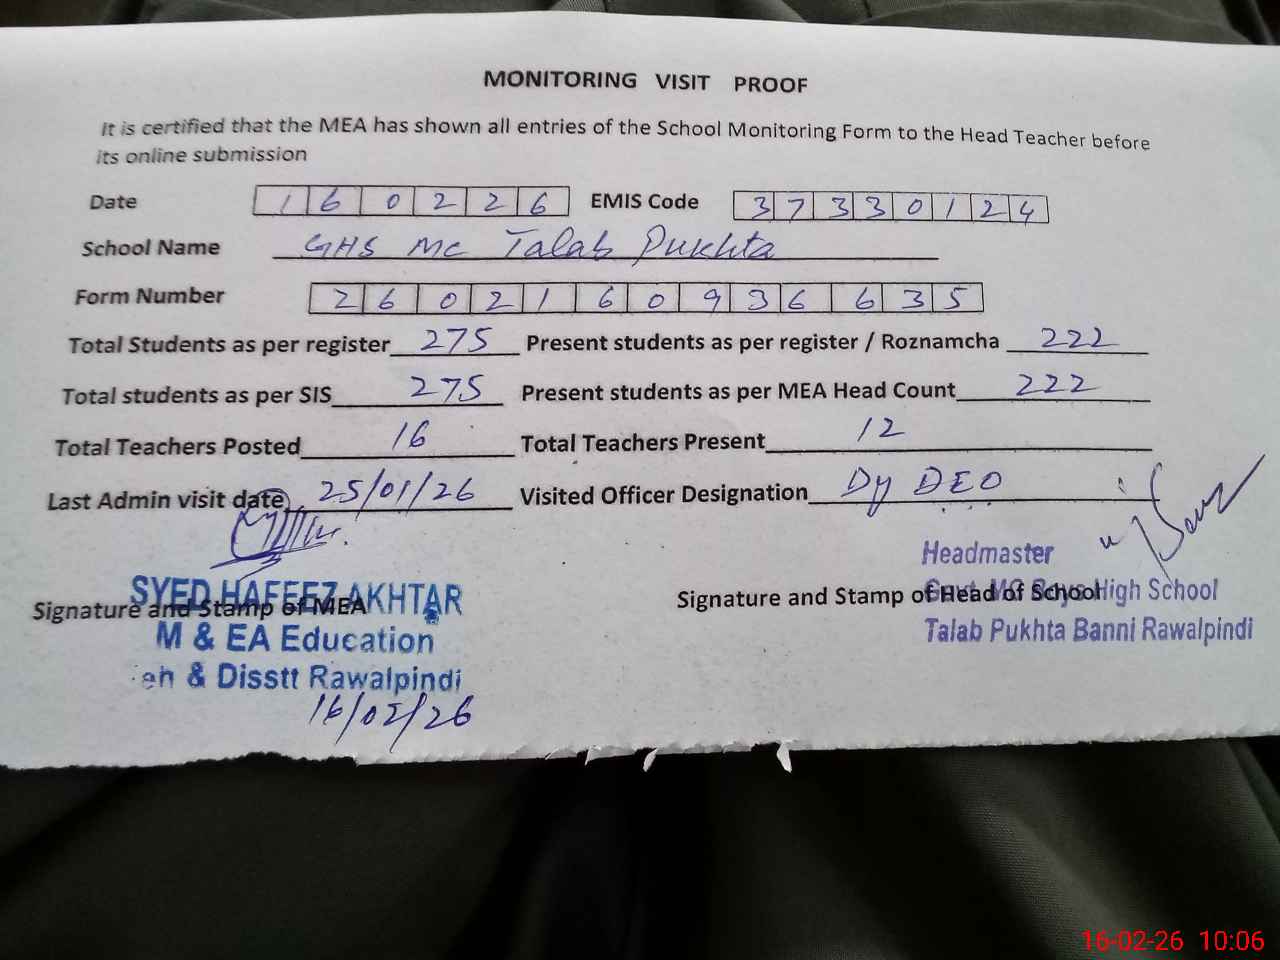 MONITORING VISIT PROOF
It is certified that the MEA has shown all entries of the School Monitoring Form to the Head Teacher before
its online submission
Date 160226 EMIS Code 37330124
School Name GHS MC Talab Pukhta
Form Number 2602160936635
Total Students as per register 275 Present students as per register / Roznamcha 222
Total students as per SIS 275 Present students as per MEA Head Count 222
Total Teachers Posted 16 Total Teachers Present 12
Last Admin visit date 25/01/26 Visited Officer Designation Dy DEO
Signature and Stamp of MEA
SYED HAFEEZ AKHTAR
M & EA Education
eh & Disstt Rawalpindi
16/02/26
Signature and Stamp of Head of School
Headmaster
Govt. MC Boys High School
Talab Pukhta Banni Rawalpindi
16-02-26 10:06